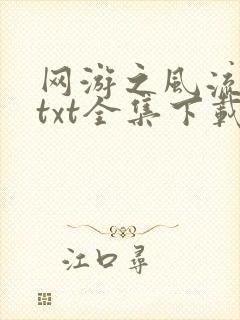 网游之风流
txt全集下载
江口寻